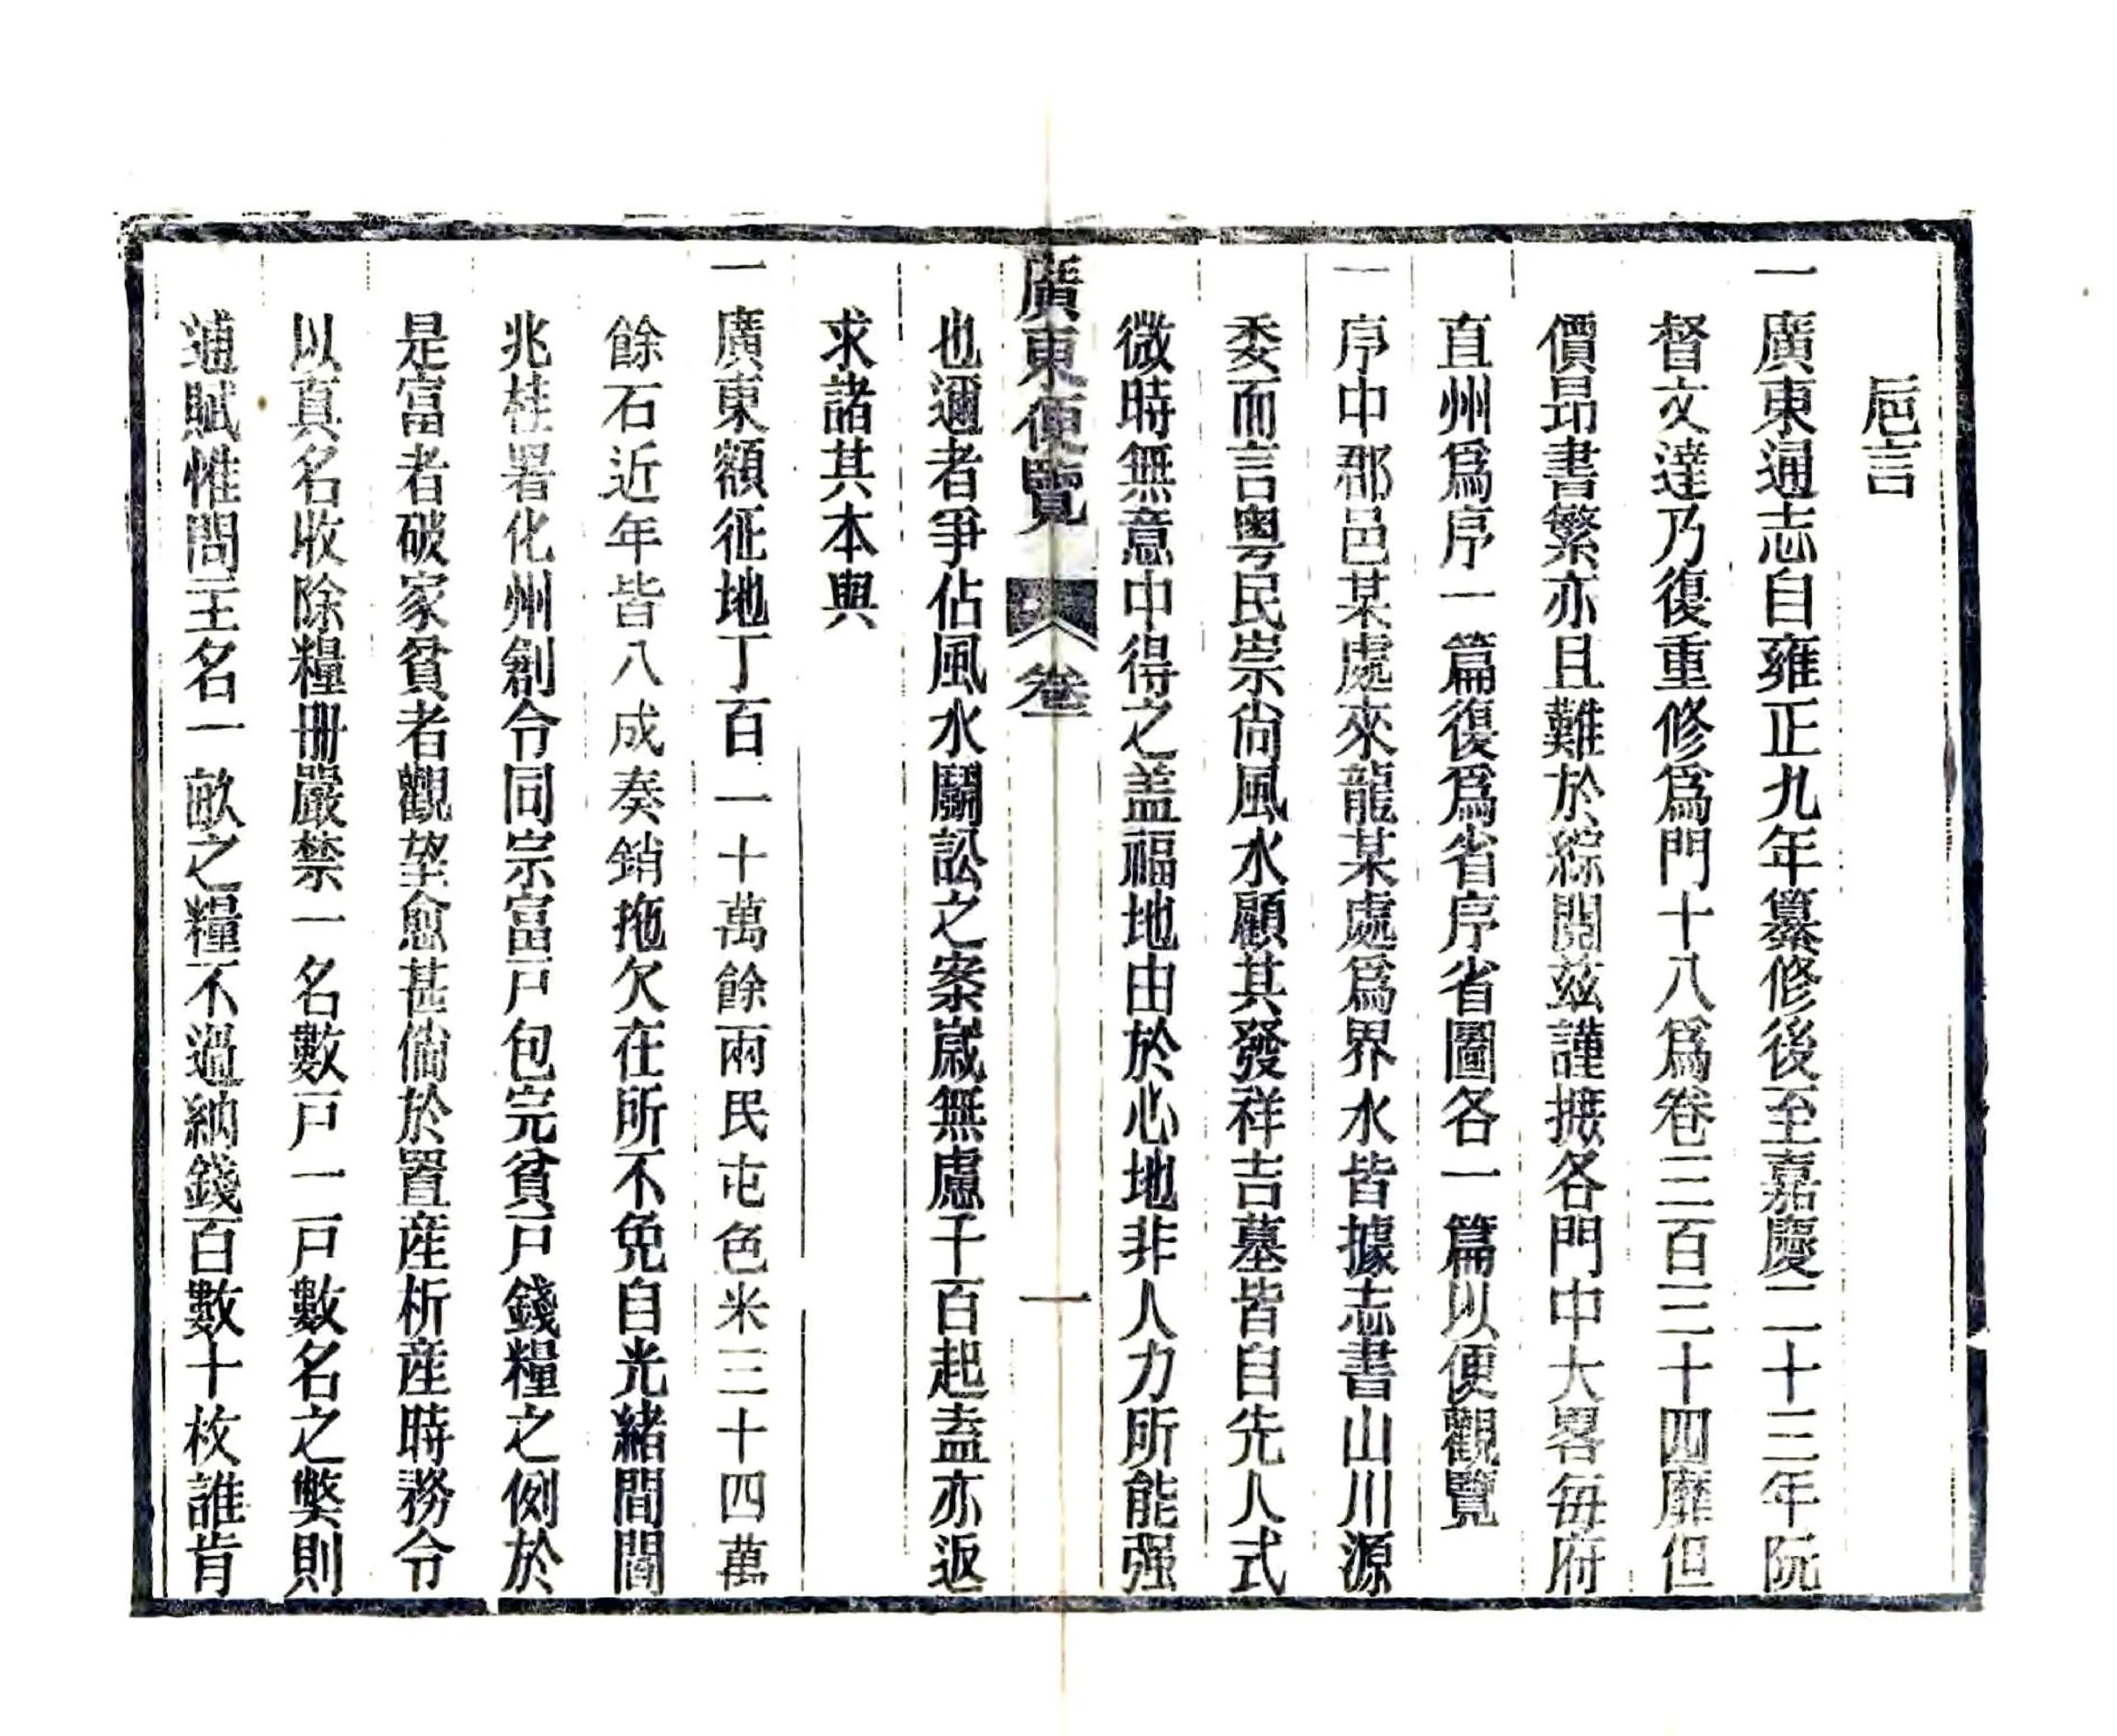 巵言
一廣東通志自雍正九年纂修後至嘉慶二十三年阮
督文達乃復重修爲門十八爲卷三百三十四靡但
價昻書繁亦且難於綜閱茲謹摭各門中大畧每府
直州爲序一篇復爲省序省圖各一篇以便觀覽
一序中郡邑某處來龍某處爲界水皆據志書山川源
委而言粵民崇尚風水顧其發祥吉墓皆自先人式
微時無意中得之盖福地由於心地非人力所能强
廣東便覽 卷一 一
也邇者爭佔風水鬭訟之案嵗無慮千百起盍亦返
求諸其本與
一廣東額征地丁百一十萬餘兩民屯色米三十四萬
餘石近年皆八成奏銷拖欠在所不免自光緒間閻
兆桂署化州創令同宗富戸包完貧戸錢糧之例於
是富者破家貧者觀望愈甚倘於置産析産時務令
以真名收除糧册嚴禁一名數戸一戸數名之弊則
逋賦惟問主名一畝之糧不過納錢百數十枚誰肯